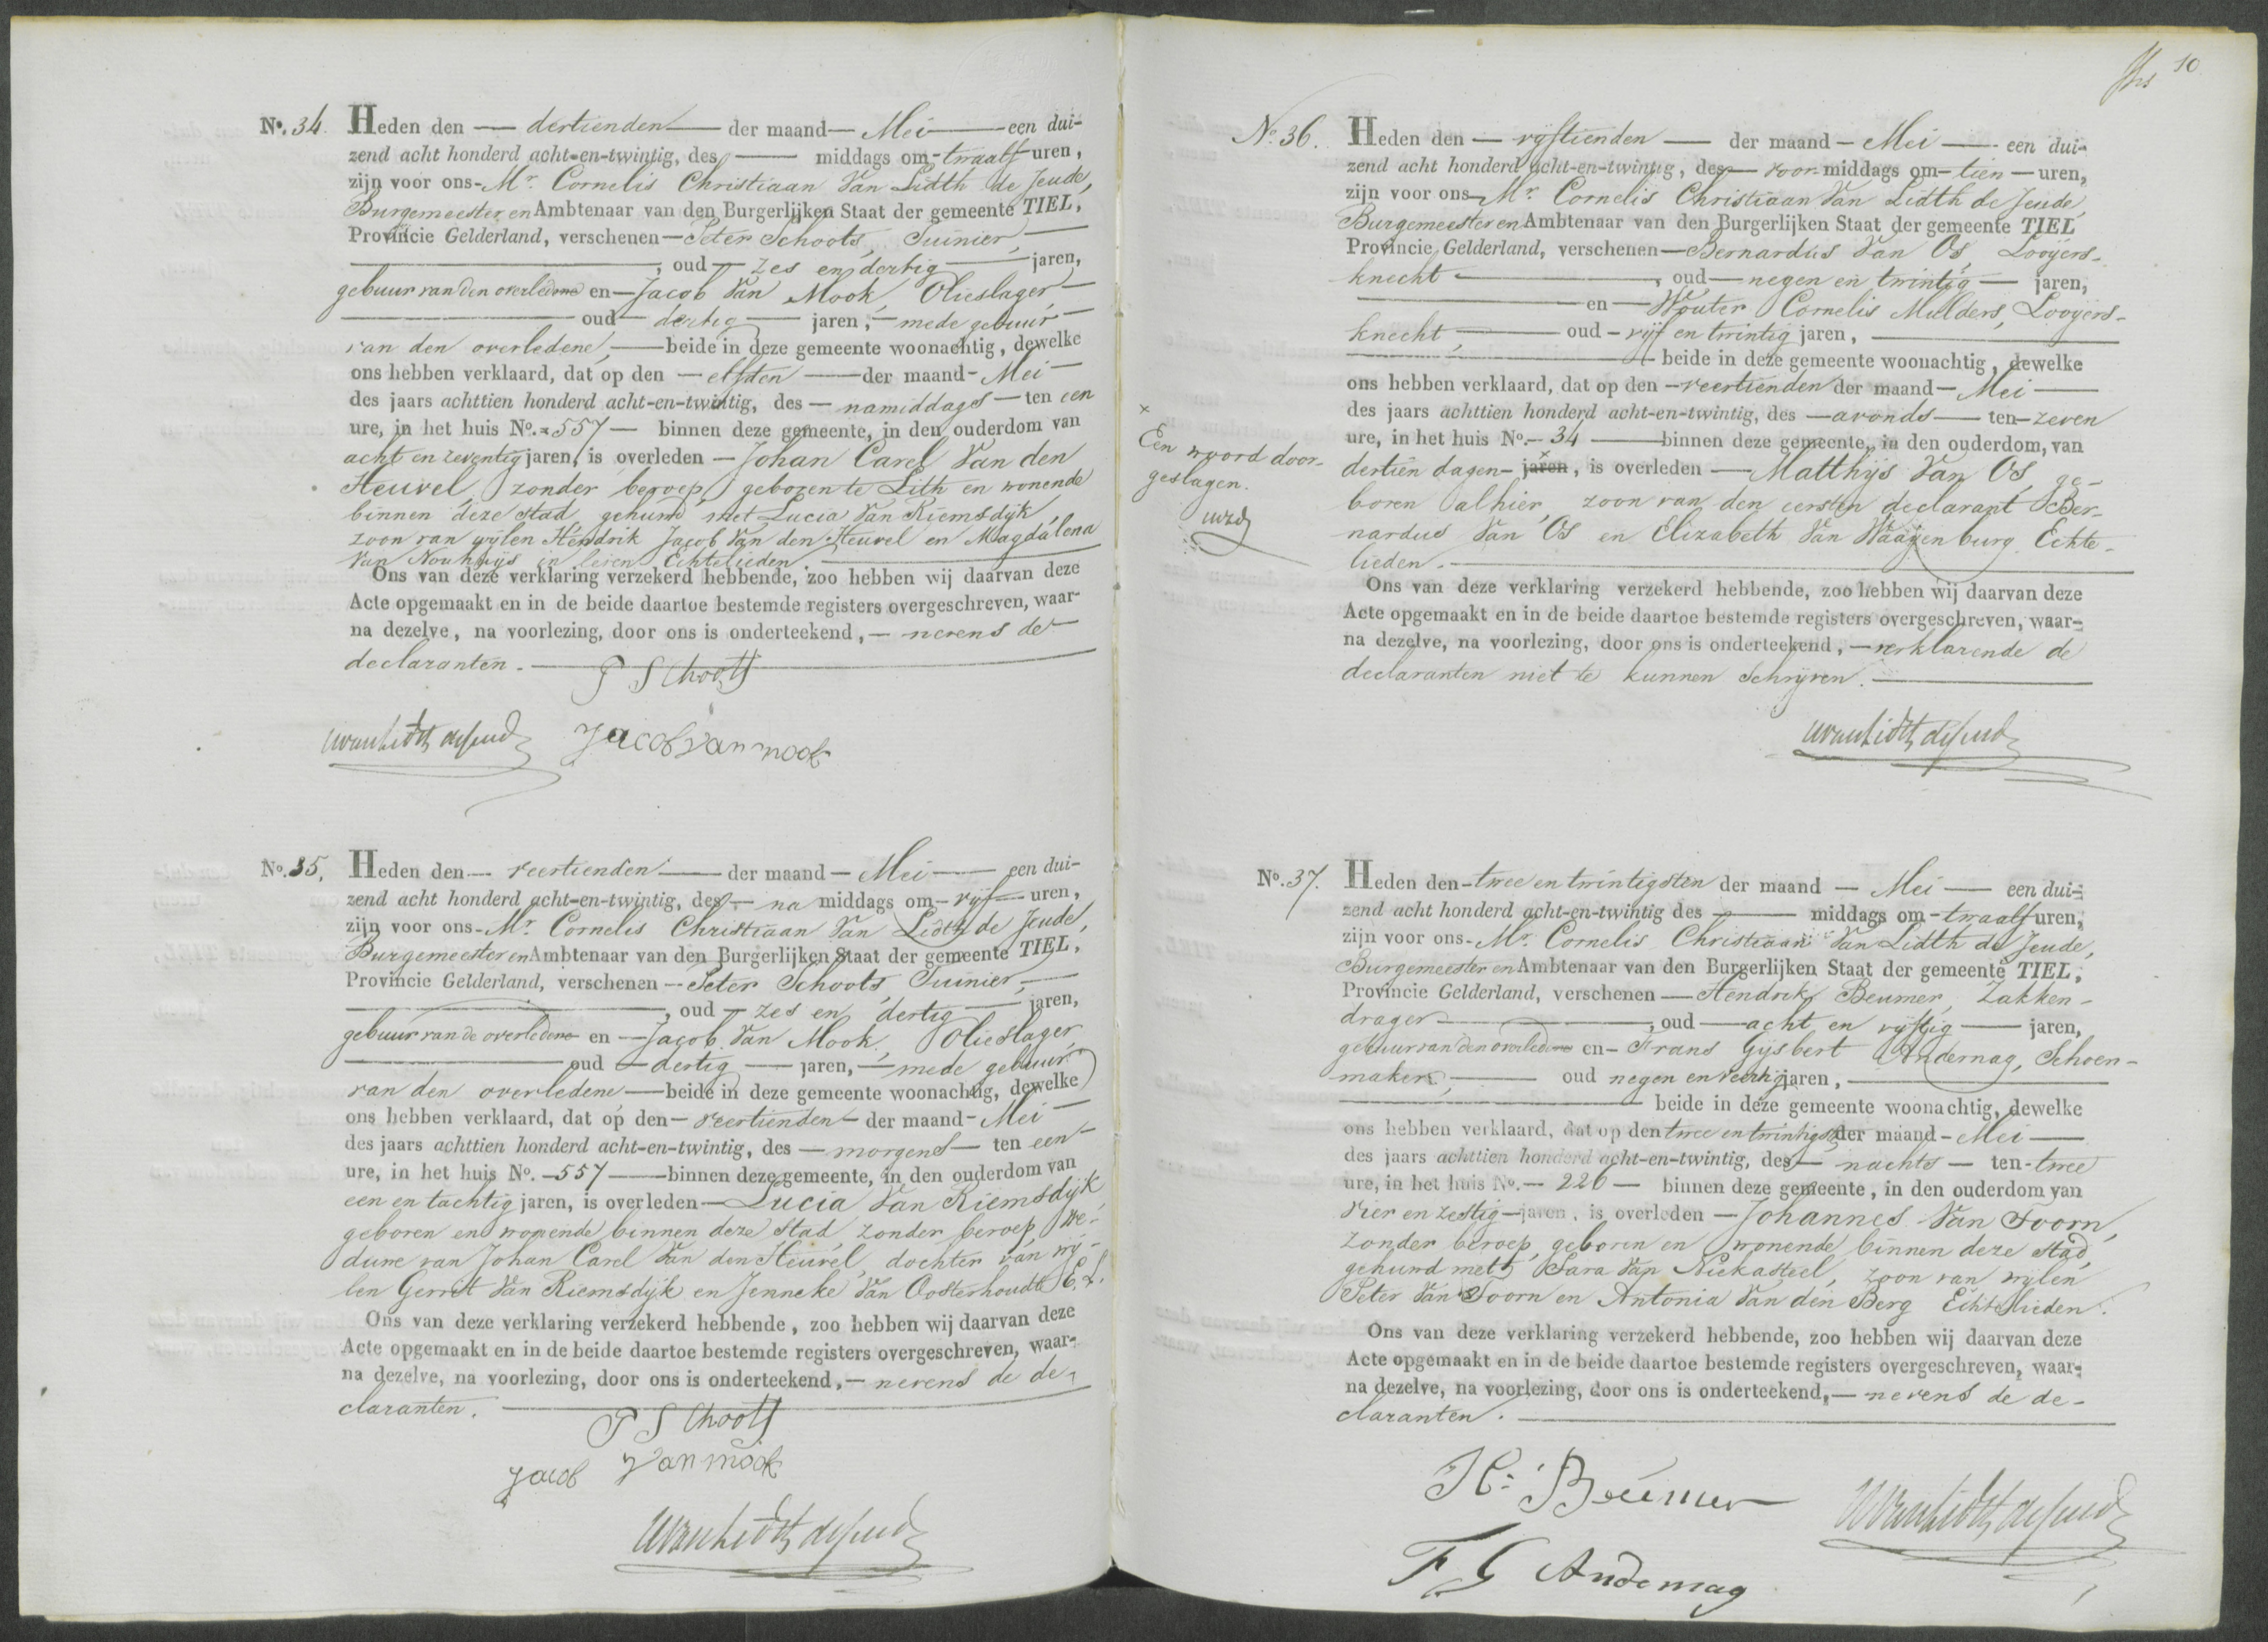 N⁰. 34. Heden den — dertienden — der maand — Mei — een dui-
zend acht honderd acht-en-twintig, des — middags om - twaalf uren,
zijn voor ons - Mr. Cornelis Christiaan Van Lidth de Jeude,
Burgemeester en Ambtenaar van den Burgerlijken Staat der gemeente TIEL,
Provincie Gelderland, verschenen — Peter Schoots, Tuinier, —
—, oud — zes en dertig — jaren,
gebuur van den overledene en — Jacob Van Mook, Olieslager, —
— oud — dertig — jaren, — mede gebuur —
van den overledene, — beide in deze gemeente woonachtig, dewelke
ons hebben verklaard, dat op den — elfden — der maand - Mei —
des jaars achttien honderd acht-en-twintig, des — namiddags — ten een
ure, in het huis N⁰. - 557 — binnen deze gemeente, in den ouderdom van
acht en zeventig jaren, is overleden — Johan Carel Van den
Heuvel, zonder beroep, geboren te Lith en wonende
binnen deze stad, gehuwd met Lucia Van Riemsdijk,
zoon van wylen Hendrik Jacob Van den Heuvel en Magdalena
Van Nouhuys in leven Echtelieden. —
Ons van deze verklaring verzekerd hebbende, zoo hebben wij daarvan deze
Acte opgemaakt en in de beide daartoe bestemde registers overgeschreven, waar-
na dezelve, na voorlezing, door ons is onderteekend, — nevens de
declaranten. —
P Schoots
Jacob van mook
N⁰. 35. Heden den — veertienden — der maand — Mei — een dui-
zend acht honderd acht-en-twintig, des — na middags om - vijf — uren,
zijn voor ons - Mr. Cornelis Christiaan Van Lidth de Jeude,
Burgemeester en Ambtenaar van den Burgerlijken Staat der gemeente TIEL,
Provincie Gelderland, verschenen — Peter Schoots, Tuinier, —
—, oud — zes en dertig — jaren,
gebuur van de overledene en — Jacob Van Mook, Olieslager,
— oud — dertig — jaren, — mede gebuur
van den overledene — beide in deze gemeente woonachtig, dewelke
ons hebben verklaard, dat op den — veertienden — der maand - Mei —
des jaars achttien honderd acht-en-twintig, des — morgens — ten een —
ure, in het huis N⁰. - 557 — binnen deze gemeente, in den ouderdom van
een en tachtig jaren, is overleden — Lucia Van Riemsdijk
geboren en wonende binnen deze stad, zonder beroep, we-
duwe van Johan Carel Van den Heuvel, dochter van wy-
len Gerrit Van Riemsdijk en Jenneke Van Oosterhoudt E. L.
Ons van deze verklaring verzekerd hebbende, zoo hebben wij daarvan deze
Acte opgemaakt en in de beide daartoe bestemde registers overgeschreven, waar-
na dezelve, na voorlezing, door ons is onderteekend, — nevens de de-
claranten. —
P Schoots
Jacob Van mook
10
N⁰. 36. Heden den — vyftienden — der maand — Mei — een dui-
zend acht honderd acht-en-twintig, des — voor middags om — tien — uren,
zijn voor ons — Mr. Cornelis Christiaan Van Lidth de Jeude,
Burgemeester en Ambtenaar van den Burgerlijken Staat der gemeente TIEL
Provincie Gelderland, verschenen — Bernardus Van Os, Looyers-
knecht —, oud — negen en twintig — jaren,
— en — Wouter Cornelis Mulders, Looyers-
knecht, — oud — vijf en twintig jaren, —
— beide in deze gemeente woonachtig, dewelke
ons hebben verklaard, dat op den — veertienden der maand — Mei —
des jaars achttien honderd acht-en-twintig, des — avonds — ten — zeven
ure, in het huis N⁰. - 34 — binnen deze gemeente, in den ouderdom, van
dertien dagen - jaren, is overleden — Matthijs Van Os, ge-
boren alhier, zoon van den eersten declarant Ber-
nardus Van Os en Elizabeth Van Waayenburg Echte-
lieden. —
x
Een woord door-
geslagen.
Ons van deze verklaring verzekerd hebbende, zoo hebben wij daarvan deze
Acte opgemaakt en in de beide daartoe bestemde registers overgeschreven, waar-
na dezelve, na voorlezing, door ons is onderteekend, — verklarende de
declaranten niet te kunnen schryven. —
N⁰. 37. Heden den - twee en twintigsten der maand — Mei — een dui-
zend acht honderd acht-en-twintig des — middags om - twaalf uren,
zijn voor ons - Mr. Cornelis Christiaan Van Lidth de Jeude,
Burgemeester en Ambtenaar van den Burgerlijken Staat der gemeente TIEL,
Provincie Gelderland, verschenen — Hendrik Beumer, Zakken-
drager —, oud — acht en vyftig — jaren,
gebuur van den overledene en - Frans Gysbert Andernag, Schoen-
maker, — oud negen en veertig jaren, —
— beide in deze gemeente woonachtig, dewelke
ons hebben verklaard, dat op den twee en twintigsten der maand - Mei —
des jaars achttien honderd acht-en-twintig, des — nachts — ten - twee
ure, in het huis N⁰. — 226 — binnen deze gemeente, in den ouderdom van
vier en zestig — jaren, is overleden — Johannes Van Toorn,
zonder beroep, geboren en wonende binnen deze stad,
gehuwd met Sara Van Niekasteel, zoon van wylen
Peter Van Toorn en Antonia Van den Berg Echtelieden.
Ons van deze verklaring verzekerd hebbende, zoo hebben wij daarvan deze
Acte opgemaakt en in de beide daartoe bestemde registers overgeschreven, waar-
na dezelve, na voorlezing, door ons is onderteekend, — nevens de de-
claranten. —
H: Beumer
F G Andernag